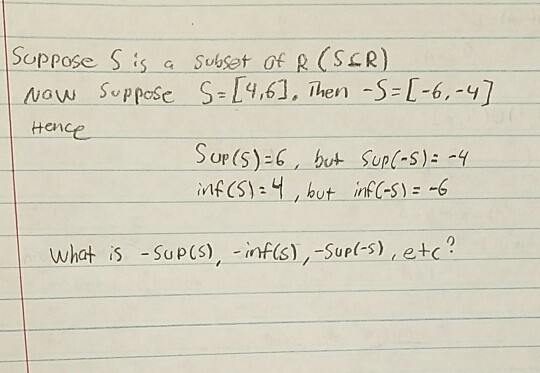 Suppose S is a subset of R (S⊆R)
Now suppose S=[4,6]. Then -S=[-6,-4]
Hence
Sup(S)=6, but Sup(-S)= -4
inf(S)=4, but inf(-S) = -6
What is -sup(S), -inf(S), -Sup(-S), etc?